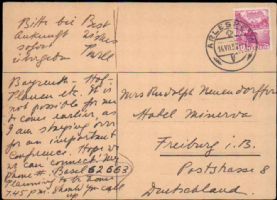 Bitte bei Post
Ankunft
sofort
übergeben
ARLESHEIM
Bayreuth - Hof -
Plauen etc. It is
not possible for me
to come earlier, as
I am staying over
for an important
Conference. Hope we
can connect. My
phone #. Basel 62663
Planning to be home
7.45 p.m. should you call
up.
Mrs Rudolph Neuendorff
Hotel Minerva
Freiburg i.B.
Poststrasse 8
Deutschland.